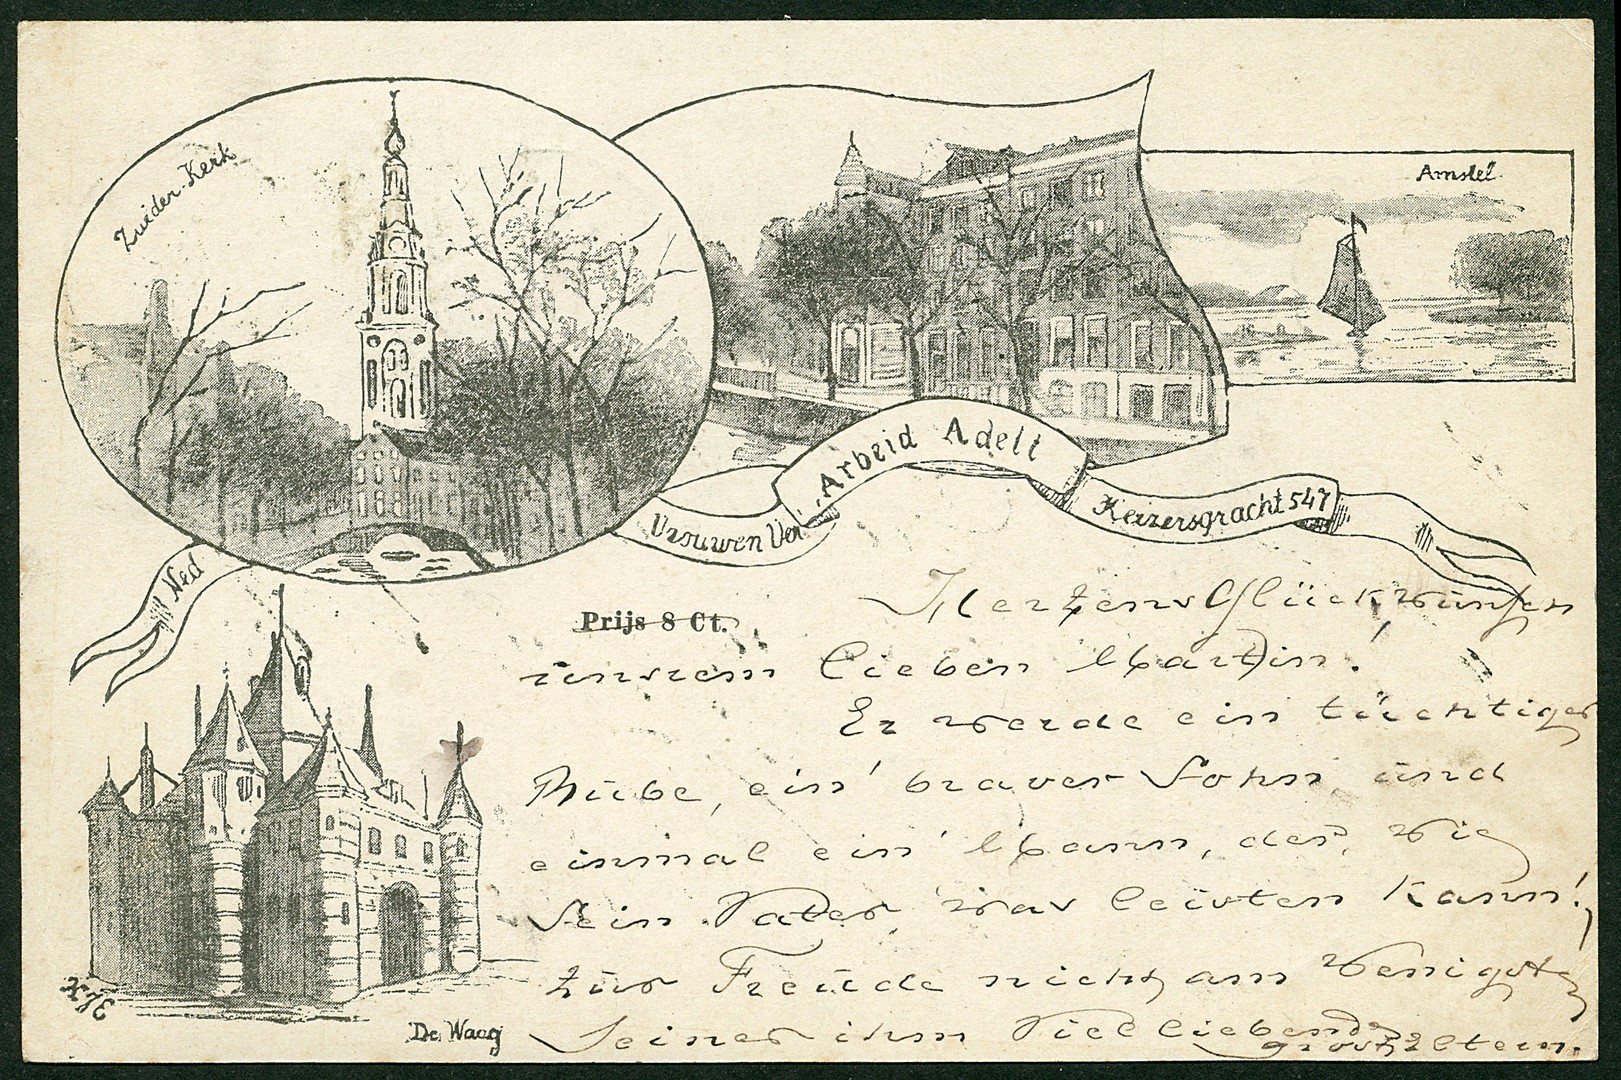 Zuider Kerk
Amstel
Ned Vrouwen Ver. Arbeid Adelt Keizersgracht 547
Prijs 8 Ct.
De Waag
Herzens Glückwunsch
unsrem lieben Martin!
Er werde ein tüchtiger
Bube, ein braver Sohn und
einmal ein Mann, der, wie
sein Vater, was leisten kann!
Zur Freude nicht am wenigst
Seiner ihn viel liebend
Großeltern.